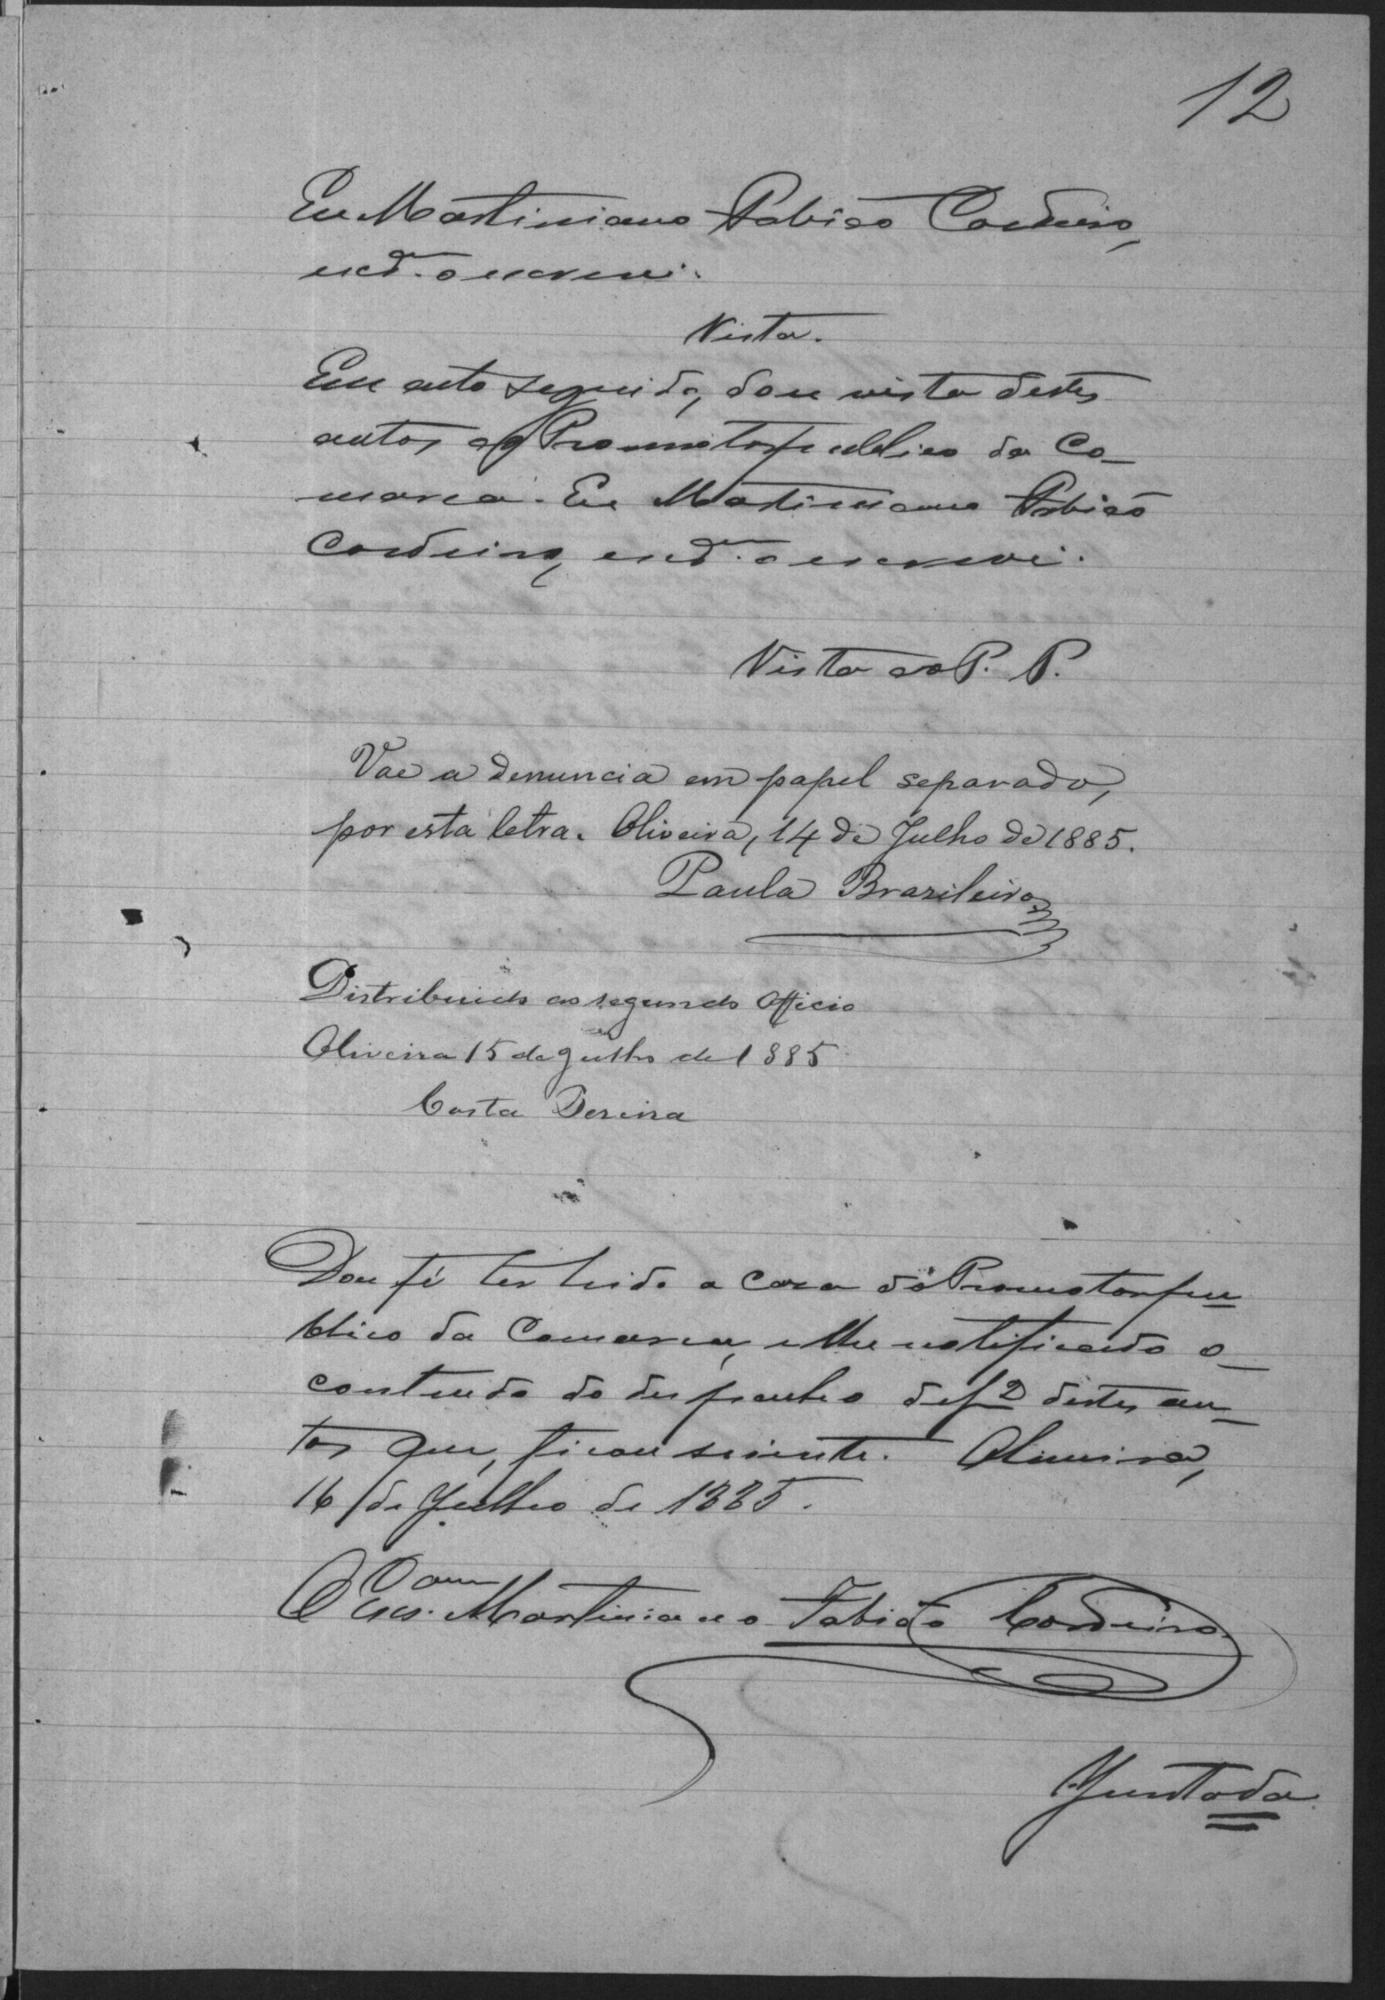 12
Eu Martiniano Fabião Cordeiro,
escam. o escrevi.
Vista.
Em acto seguido, dou vista destes
autos ao Promotor publico da Co-
marca. Eu Martiniano Fabião
Cordeiro, escam. o escrevi.
Vista ao P. P.
Vae a denuncia em papel separado,
por esta letra. Oliveira, 14 de Julho de 1885.
Paula Brazileiro
Distribuido ao segundo Officio
Oliveira 15 de Julho de 1885
Costa Pereira
Dou fé ter hido a casa do Promotor pu
blico da Comarca, e lhe notificando o
contendo do despacho de f 2 destes au-
tos que, ficou sciente. Oliveira,
16 de Julho de 1885.
O Escam. Martiniano Fabião Cordeiro
Juntada